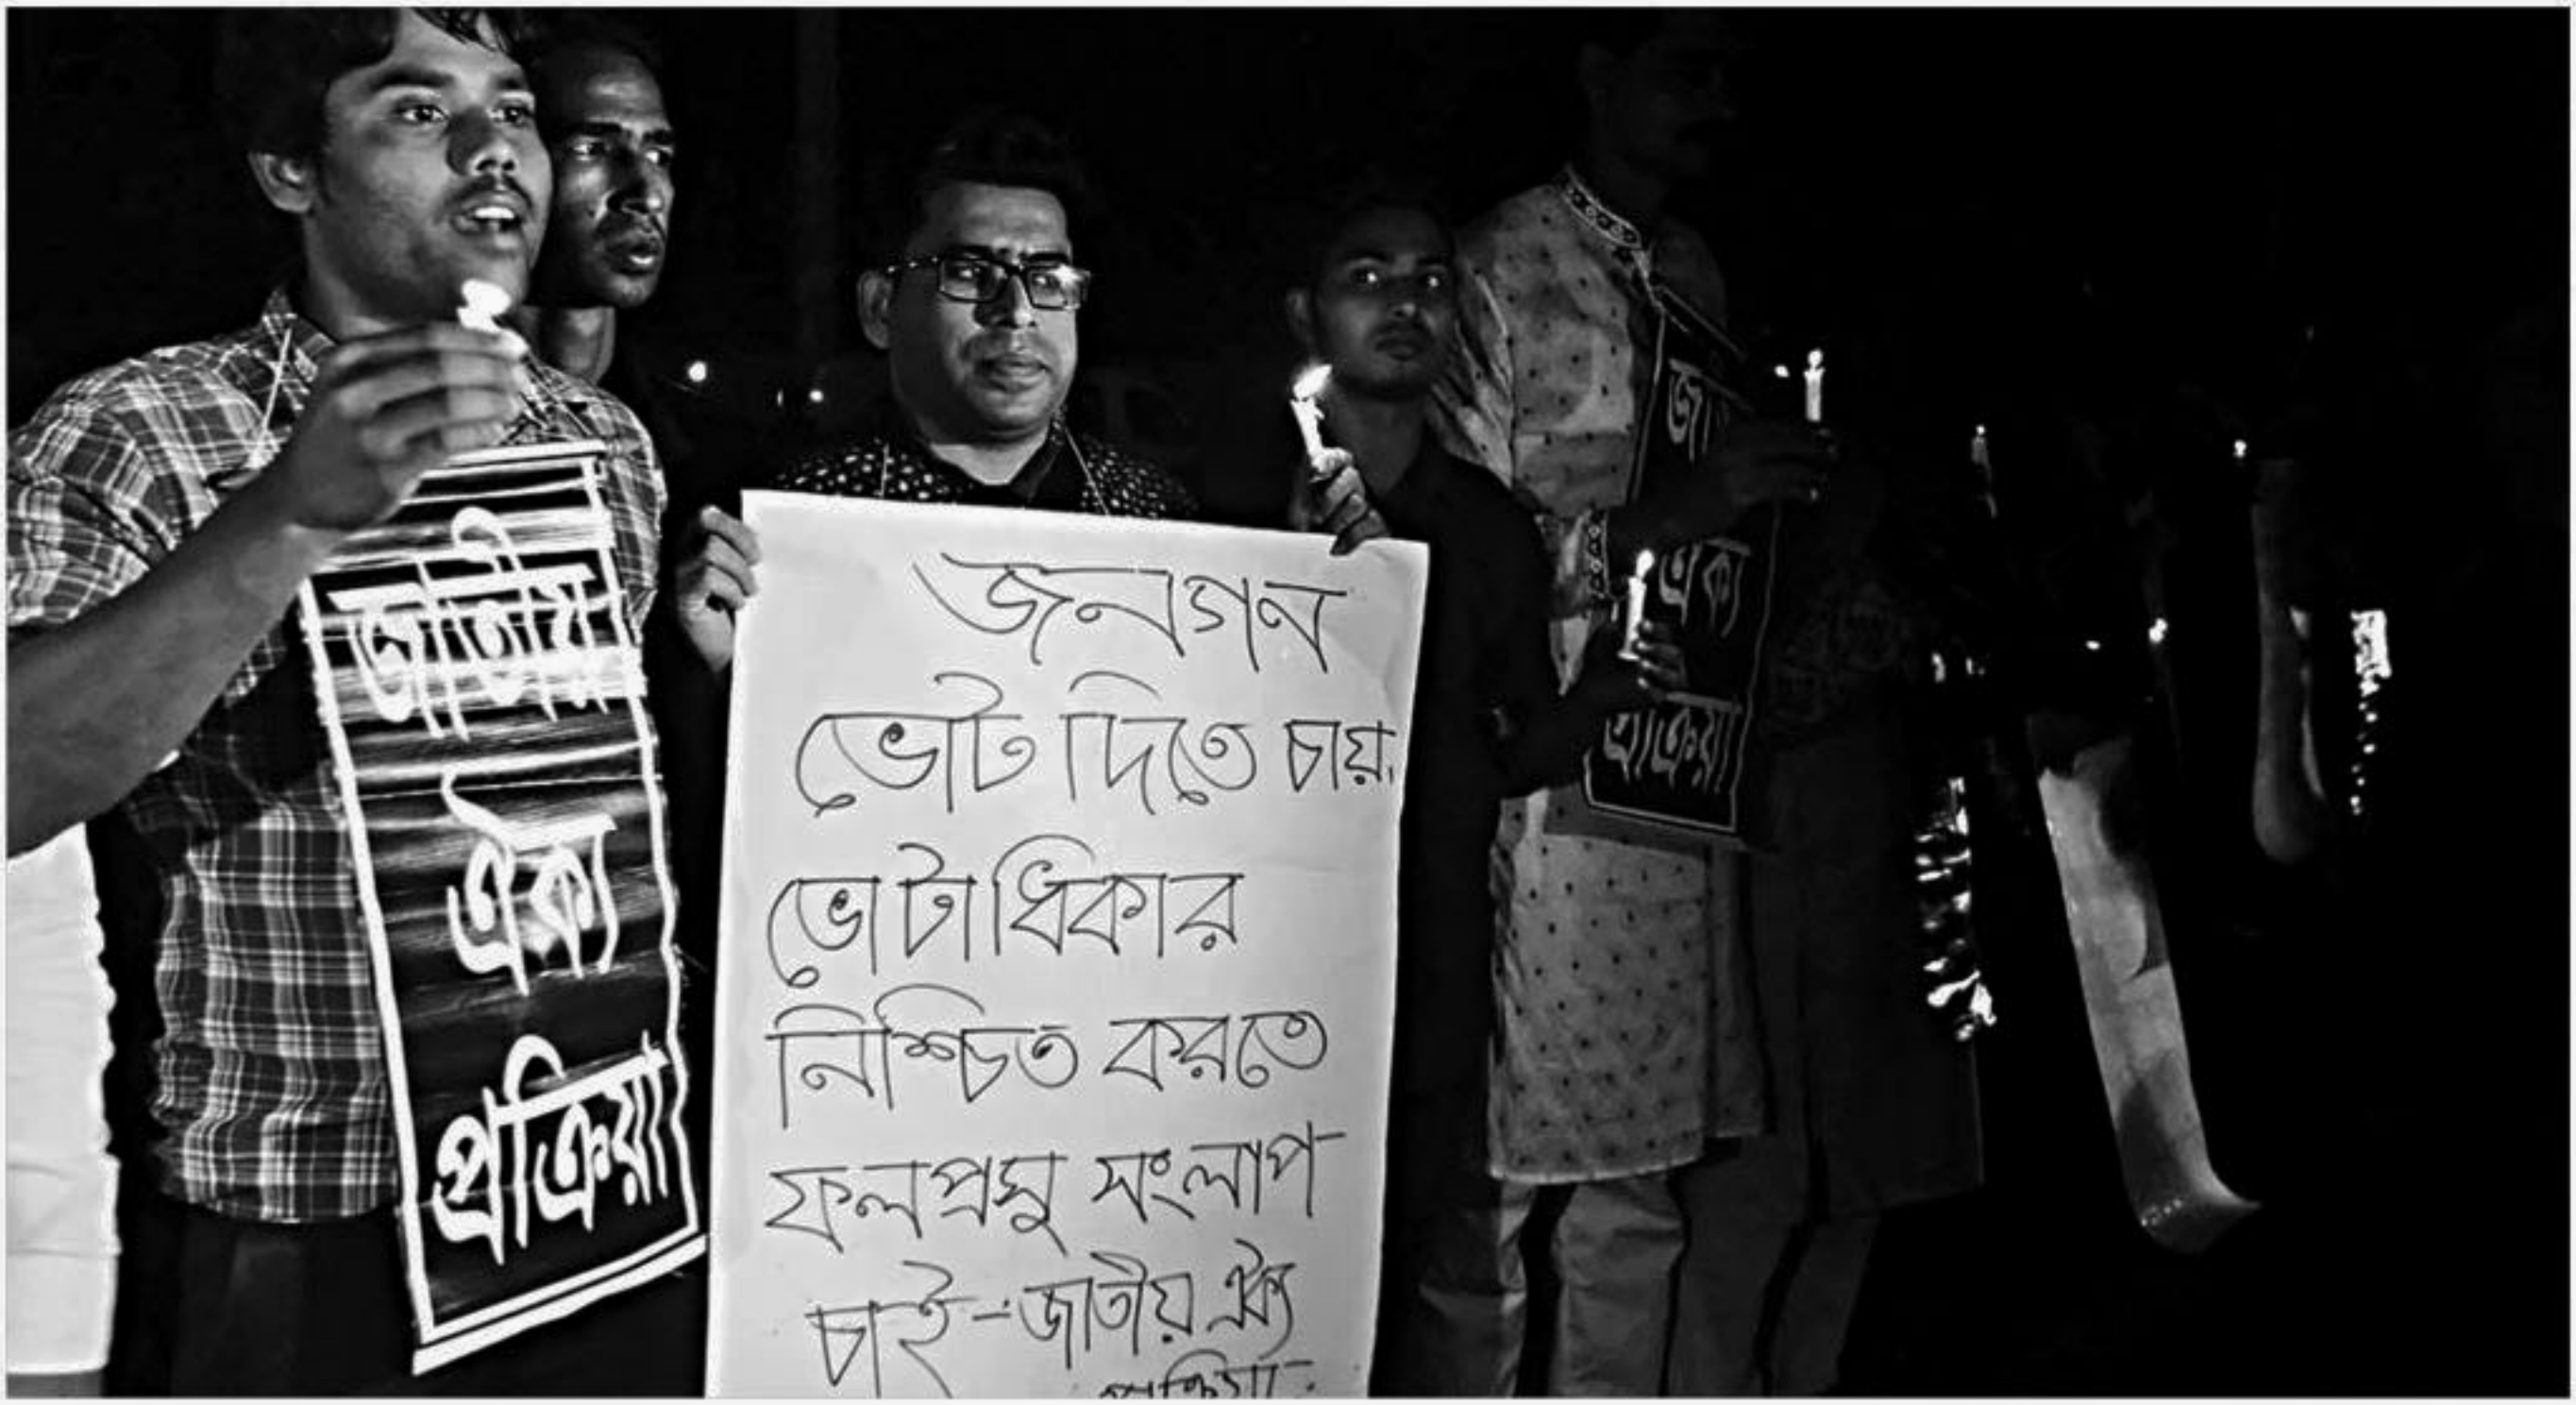 জাতীয়
ঐক্য
প্রক্রিয়া
জনগন
ভোট দিতে চায়।
ভোটাধিকার
নিশ্চিত করতে
ফলপ্রসু সংলাপ
চাই - জাতীয় ঐক্য
প্রক্রিয়া
জা
ঐক্য
প্রক্রিয়া